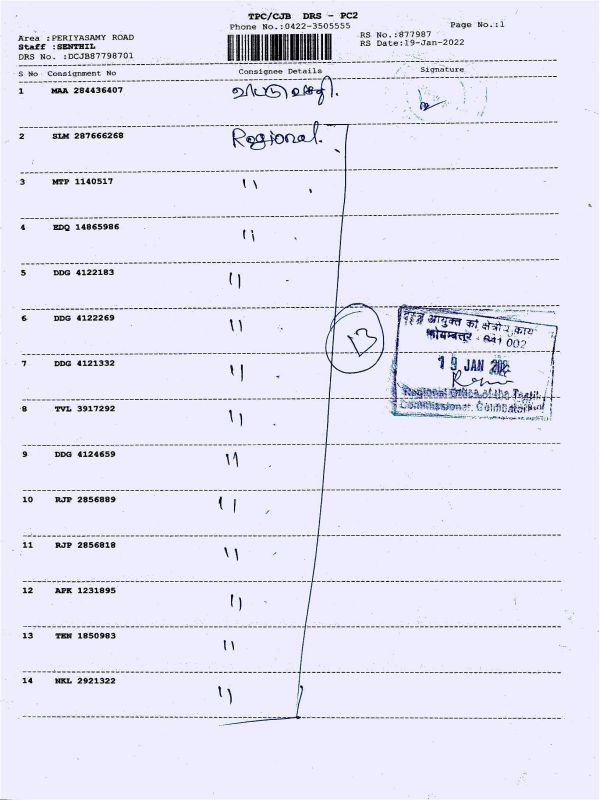 TPC/CJB DRS - PC2
Phone No.:0422-3505555
Page No.:1
Area :PERIYASAMY ROAD
Staff :SENTHIL
DRS No. :DCJB87798701
RS No.:877987
RS Date:19-Jan-2022
S No Consignment No Consignee Details Signature
1 MAA 284436407
2 SLM 287666268 Regional.
3 MTP 1140517 "
4 EDQ 14865986 "
5 DDG 4122183 "
6 DDG 4122269 "
13
7 DDG 4121332 "
8 TVL 3917292 "
9 DDG 4124659 "
10 RJP 2856889 "
11 RJP 2856818 "
12 APK 1231895 "
13 TEN 1850983 "
14 NKL 2921322 "
आयुक्त का क्षेत्रीय कार्या
कोयम्बत्तूर - 641 002
19 JAN
Regional Office of the Textile
Commissioner, Coimbatore